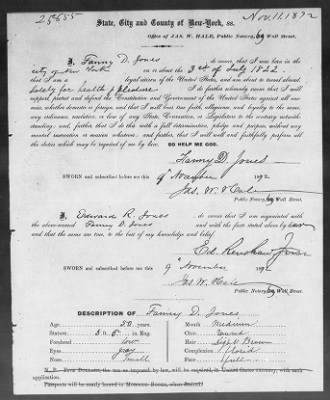 25655
Nov. 11. 1872
State, City and County of New-York, ss.
Office of JAS. W. HALE, Public Notary, 69 Wall Street.
I, Fanny D. Jones do swear, that I was born in the
city of New York on or about the 3rd of July 1822
that I am a legal citizen of the United States, and am about to travel abroad,
Solely for health & pleasure. I do further solemnly swear that I will
support, protect and defend the Constitution and Government of the United States against all ene-
mies, whether domestic or foreign; and that I will bear true faith, allegiance, and loyalty to the same,
any ordinance, resolution, or law of any State Convention, or Legislature to the contrary notwith-
standing; and further, that I do this with a full determination, pledge and purpose, without any
mental reservation or evasion whatever; and further, that I will well and faithfully perform all
the duties which may be required of me by law.
SO HELP ME GOD.
Fanny D. Jones
SWORN and subscribed before me this 9th November 1872.
Jas. W. Hale
Public Notary, 69 Wall Street.
I, Edward R. Jones do swear that I am acquainted with
the above-named Fanny D. Jones and with the fact stated above by her
and that the same is true, to the best of my knowledge and belief.
Ed. Renshaw Jones
SWORN and subscribed before me this 9th November 1872
Jas. W. Hale
Public Notary, 69 Wall Street.
DESCRIPTION OF Fanny D. Jones
Age: 50 years.
Mouth Medium
Stature: 5 ft. 5 in. Eng.
Chin: round
Forehead low
Hair: Light Brown
Eyes: gray
Complexion Florid
Nose: Small
Face: full
application.